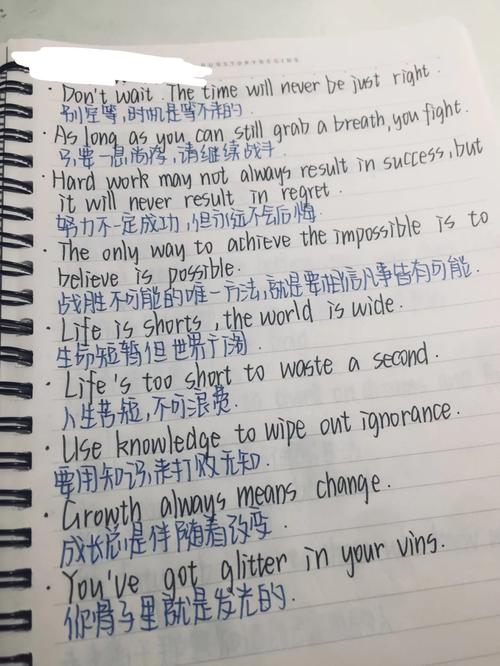 URSTORYBEGINS
· Don't wait. The time will never be just right.
别空等,时机是等不来的.
· As long as you can still grab a breath, you fight.
只要一息尚存,请继续战斗.
· Hard work may not always result in success, but
it will never result in regret.
努力不一定成功,但永远不会后悔.
· The only way to achieve the impossible is to
believe is possible.
战胜不可能的唯一方法,就是要相信凡事皆有可能.
· Life is shorts, the world is wide.
生命短暂但世界广阔
· Life's too short to waste a second.
人生苦短,不可浪费.
· Use knowledge to wipe out ignorance.
要用知识来打败无知.
· Growth always means change.
成长总是伴随着改变.
· You've got glitter in your vins.
你骨子里就是发光的.